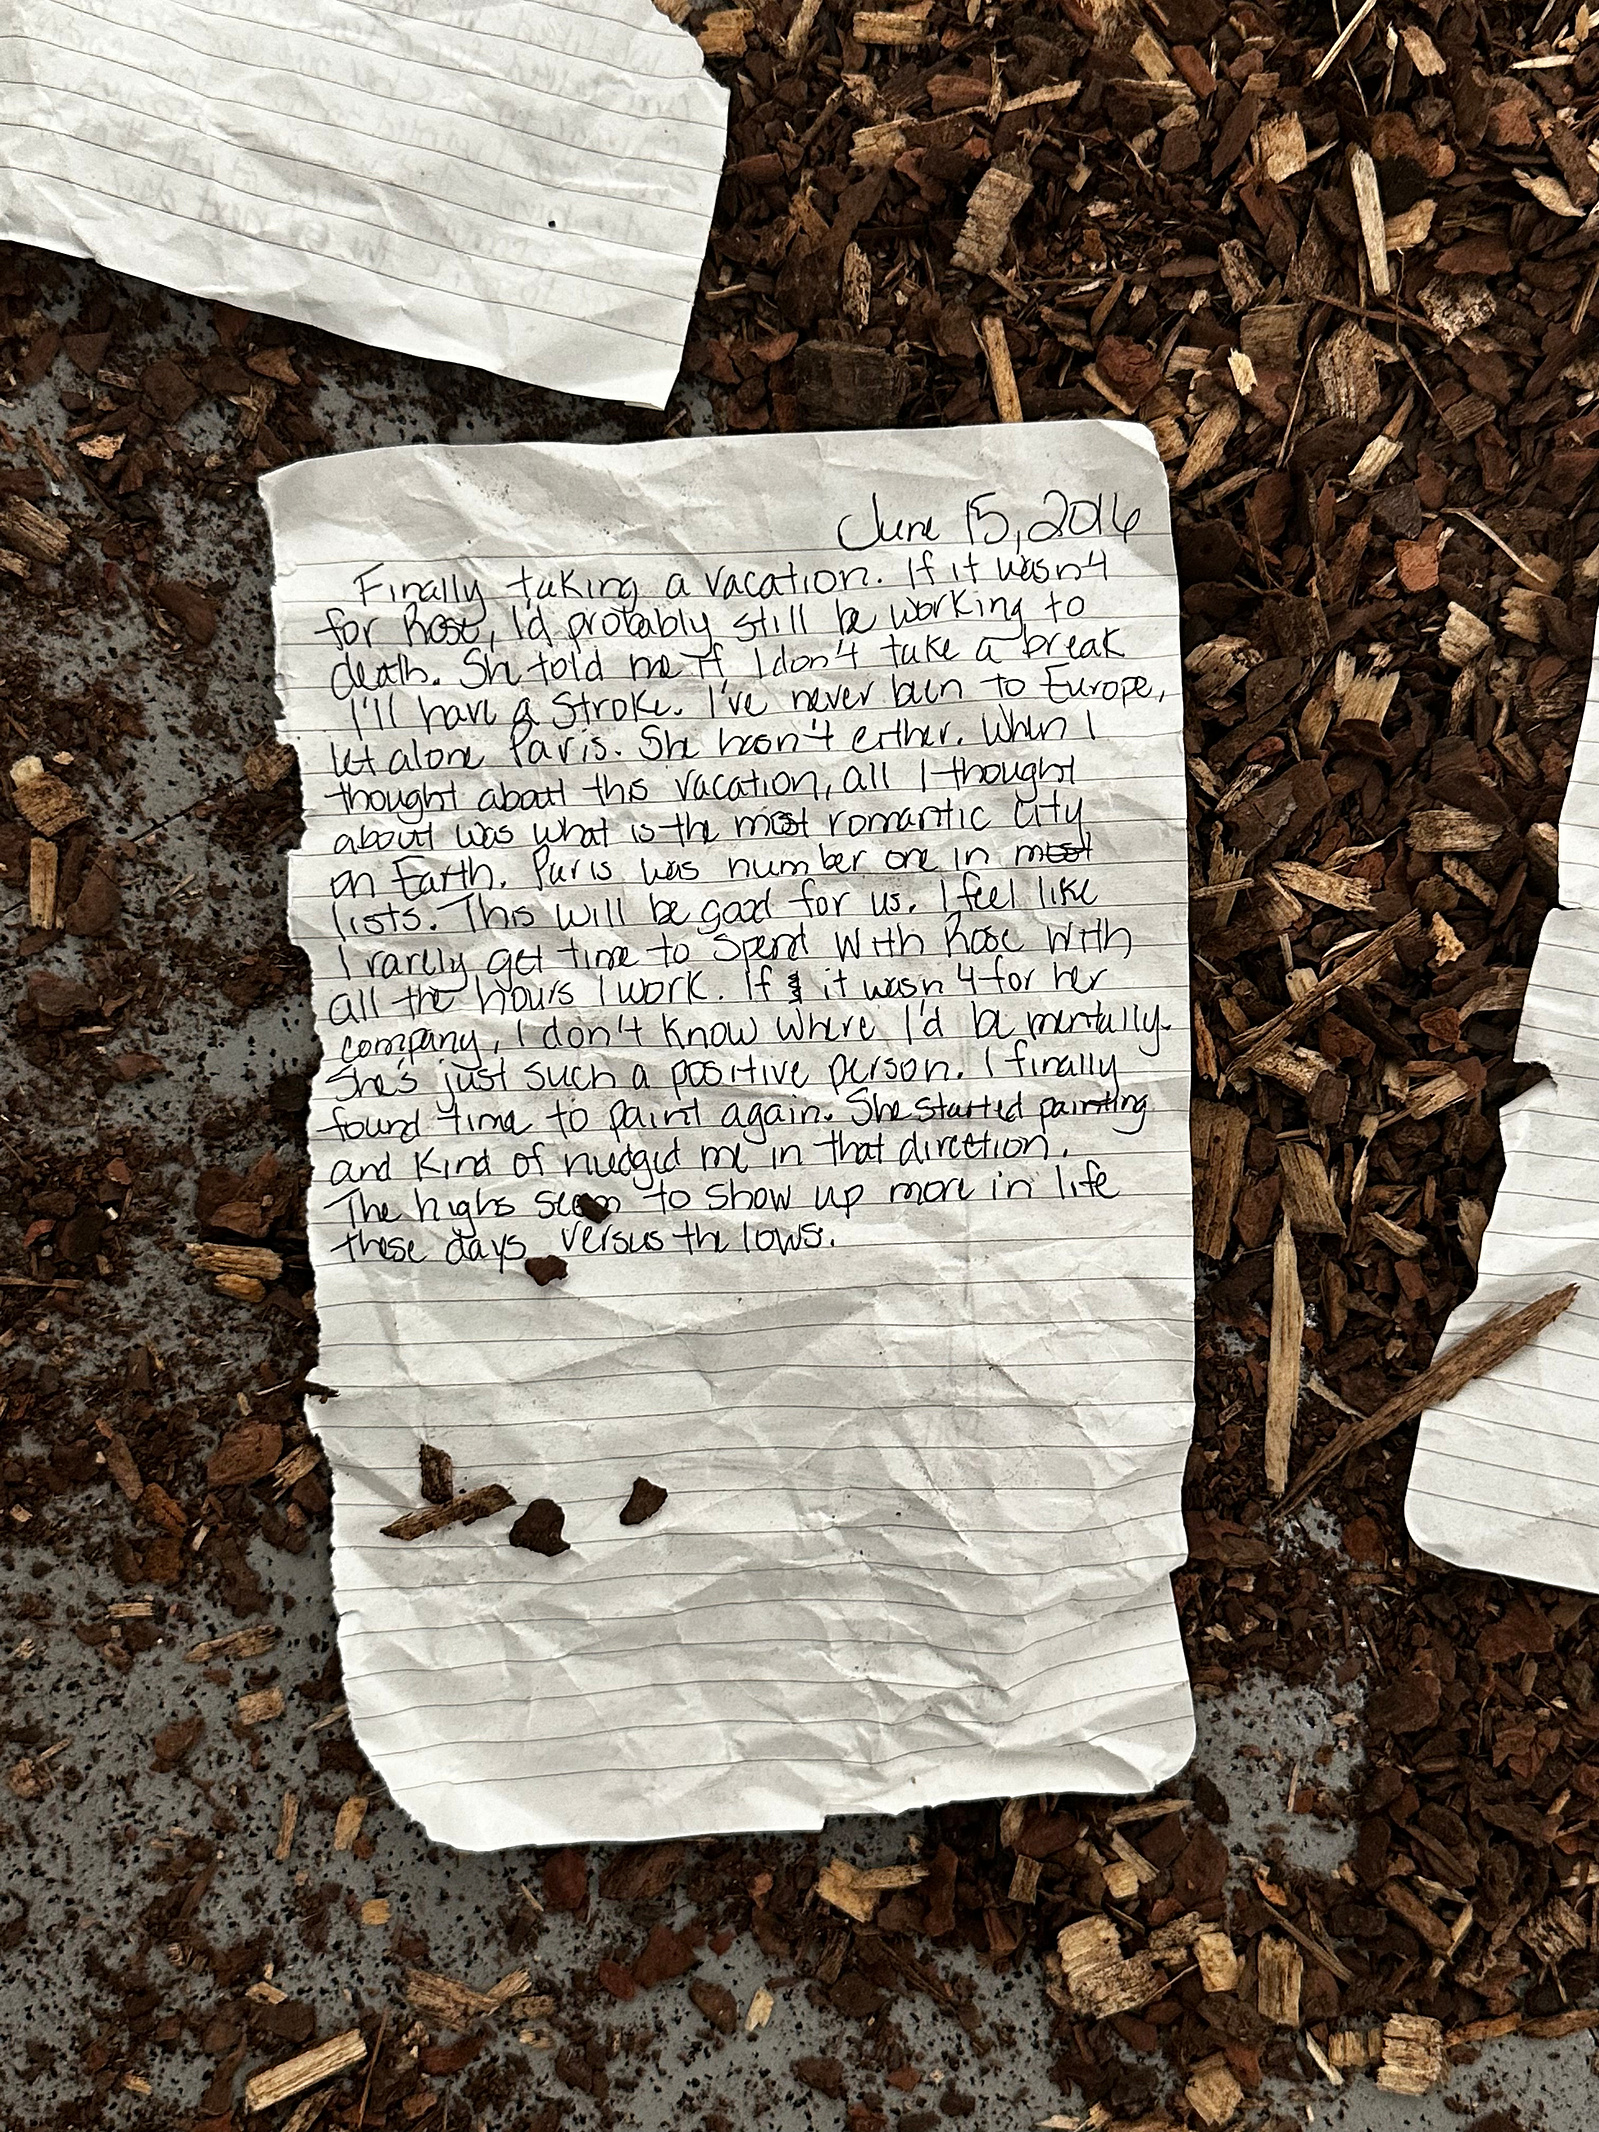 June 15, 2016
Finally taking a vacation. If it wasn't
for Rose, I'd probably still be working to
death. She told me if I don't take a break
I'll have a stroke. I've never been to Europe,
let alone Paris. She hasn't either. When I
thought about this vacation, all I thought
about was what is the most romantic city
on Earth. Paris was number one in most
lists. This will be good for us. I feel like
I rarely get time to spend with Rose with
all the hours I work. If it wasn't for her
company, I don't know where I'd be mentally.
She's just such a positive person. I finally
found time to paint again. She started painting
and kind of nudged me in that direction.
The highs seem to show up more in life
these days versus the lows.